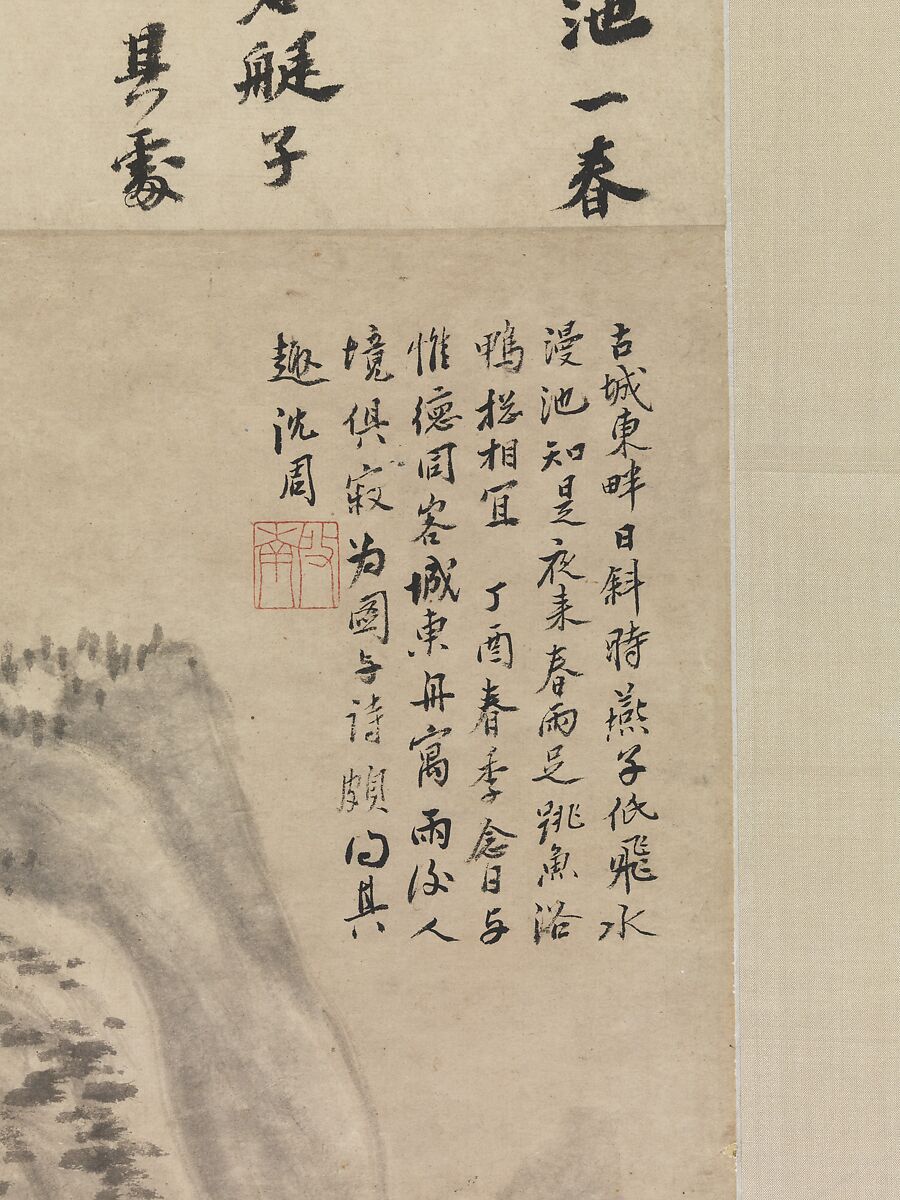 池一春
艇子
具處
古城東畔日斜時燕子低飛水
漫池知是夜来春雨足跳魚浴
鴨捴相宜 丁酉春季念日与
惟德同客城東舟寓雨後人
境俱寂为圖与詩頗得其
趣沈周
啟南